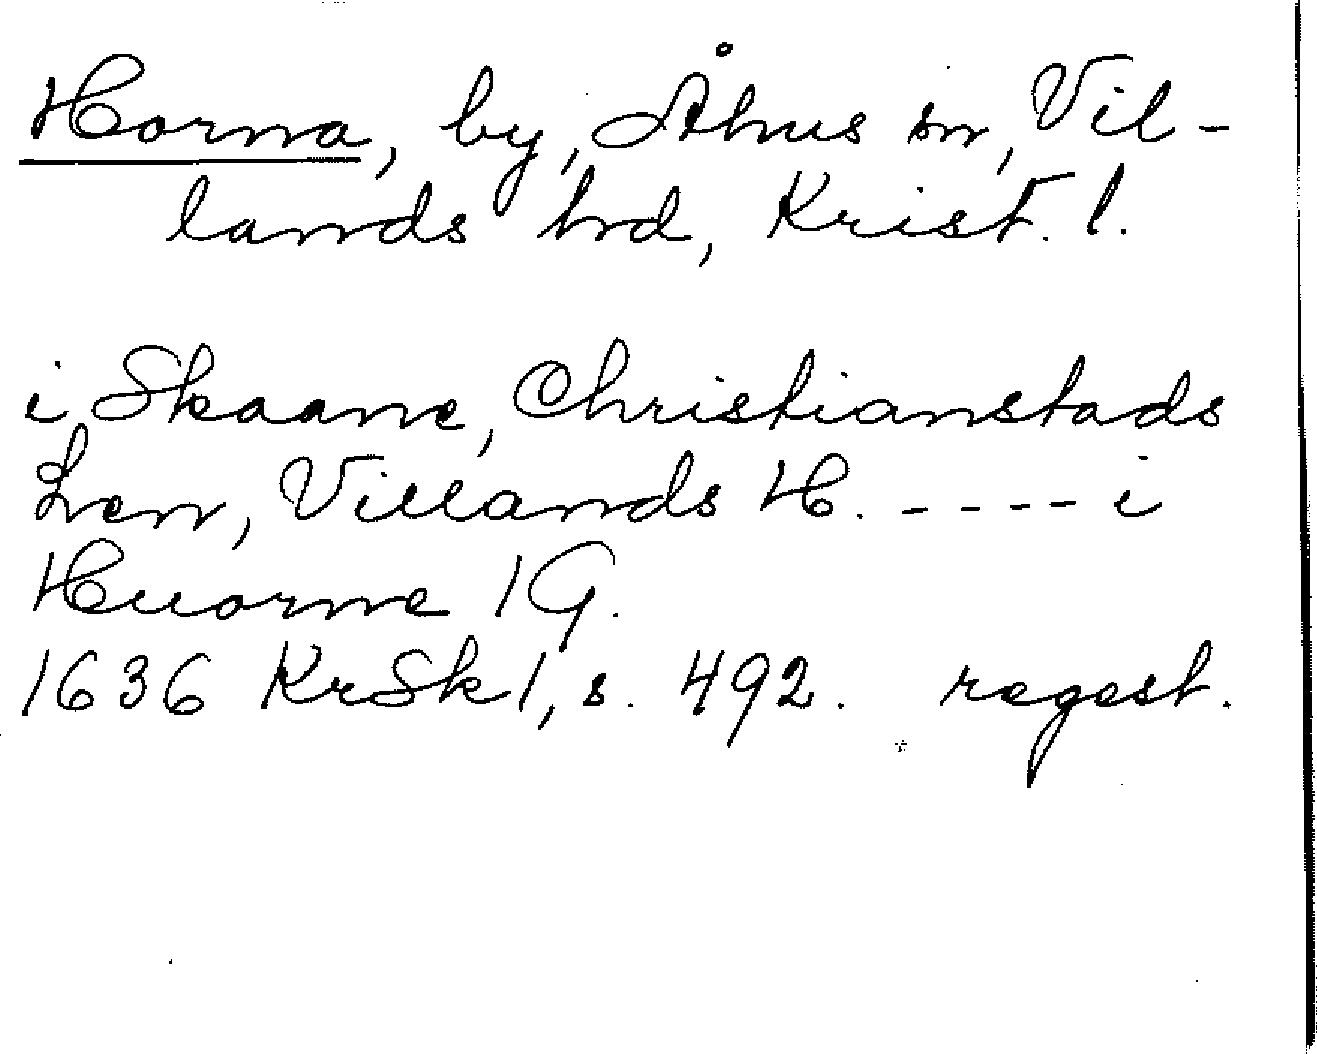 Horna, by, Åhus sn, Vil-
lands hd, Krist. l.
i Skaane, Christianstads
Len, Villands H. ----- i
Huorne 1 G.
1636 KrSk 1, s. 492. regest.